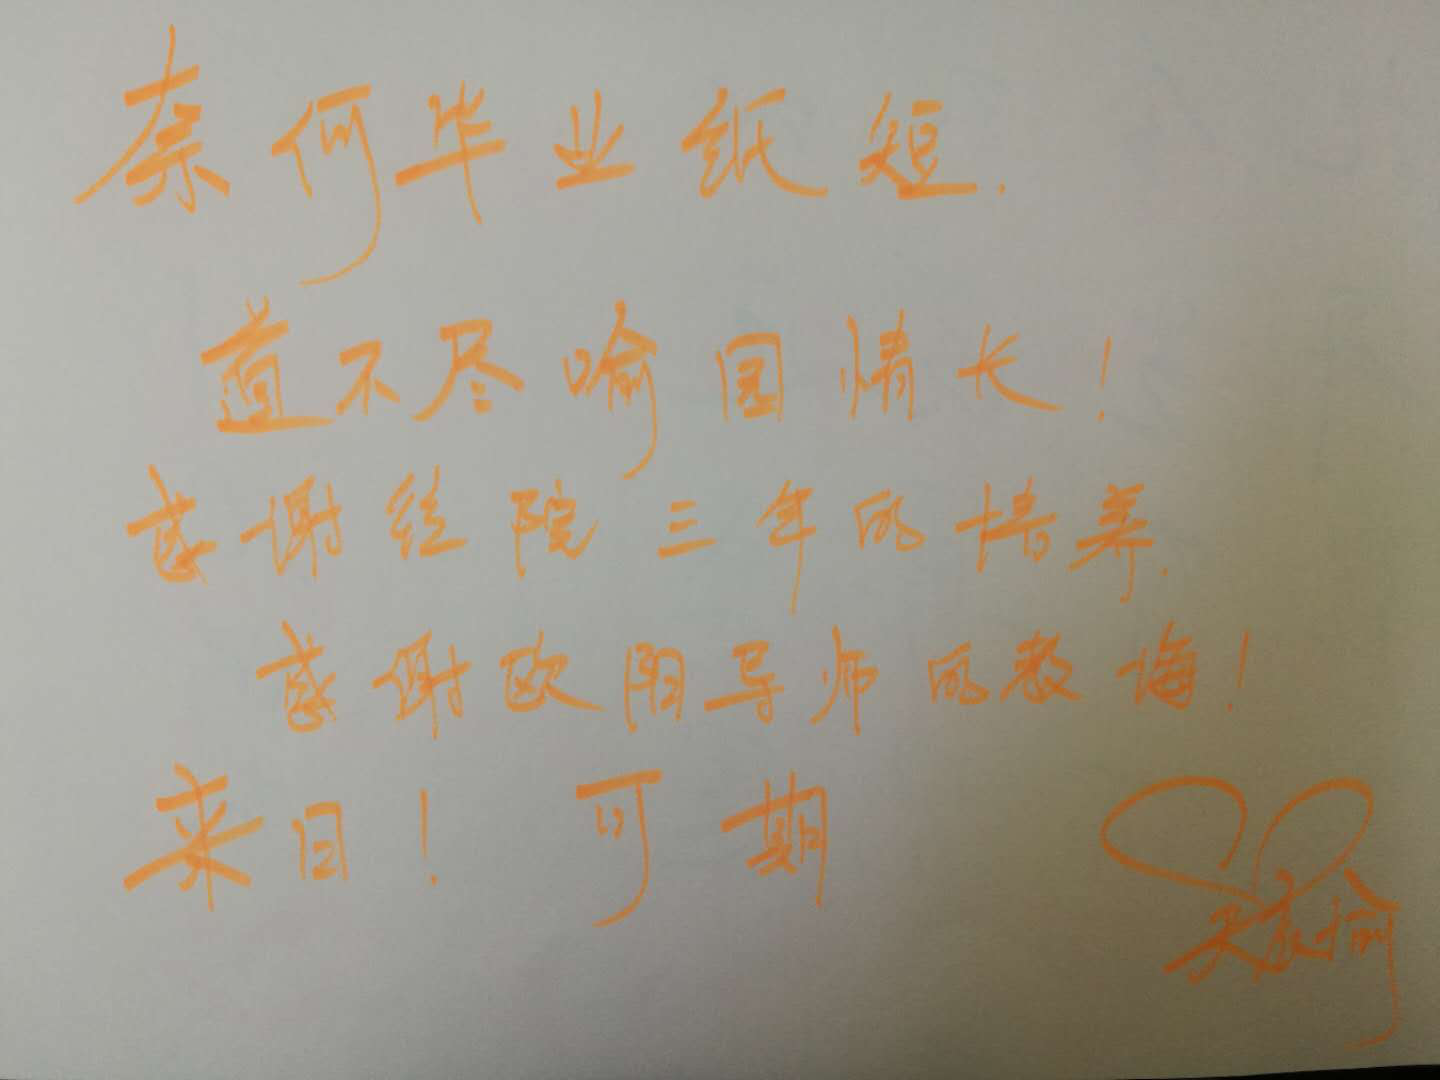 奈何毕业纸短.
道不尽喻园情长!
感谢经院三年的培养.
感谢欧阳导师的教诲!
来日!可期